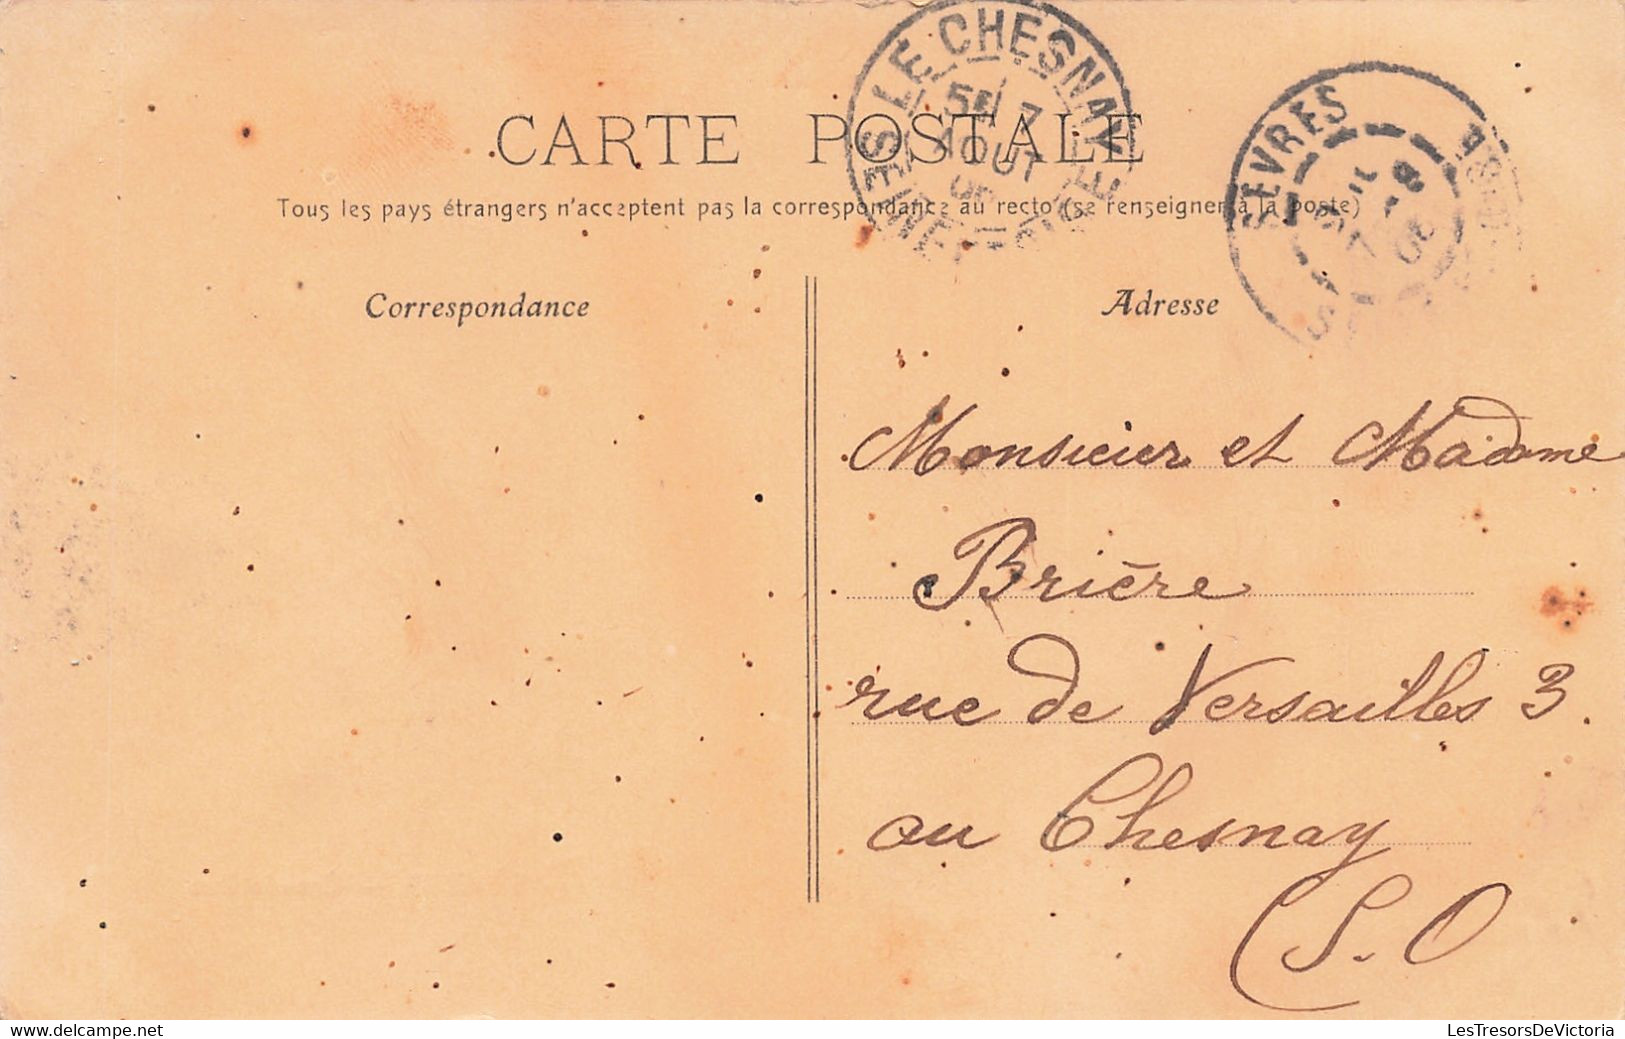 LE CHESNAY
SEINE-ET-OISE
5E 7
AOUT
SEVRES
CARTE POSTALE
Tous les pays étrangers n'acceptent pas la correspondance au recto (se renseigner à la poste)
Correspondance
Adresse
Monsieur et Madame
Brière
rue de Versailles 3.
au Chesnay
(S.O
delcampe.net
LesTresorsDeVictoria